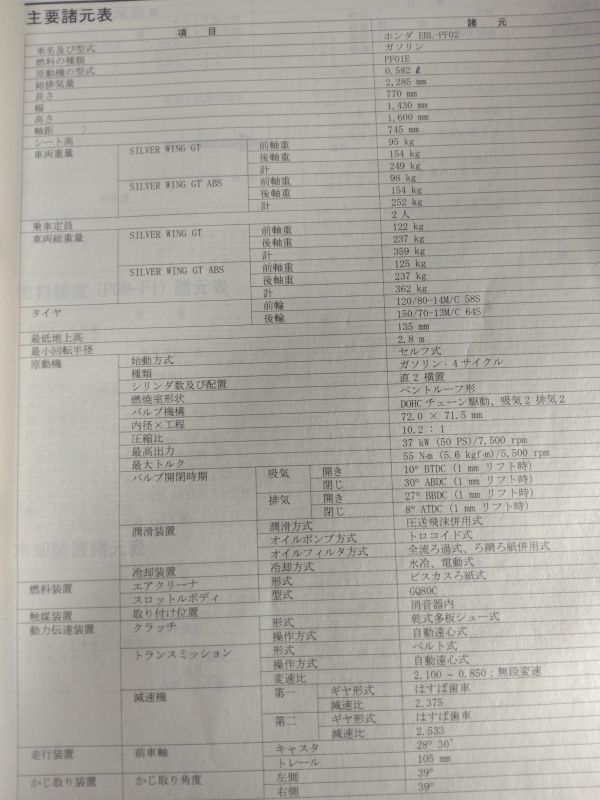 主要諸元表
項 目 諸 元
車名及び型式 ホンダ EBL-PF02
燃料の種類 ガソリン
原動機の型式 PF01E
総排気量 0.582 ℓ
長さ 2,285 mm
幅 770 mm
高さ 1,430 mm
軸距 1,600 mm
シート高 745 mm
車両重量 SILVER WING GT 前軸重 95 kg
後軸重 154 kg
計 249 kg
SILVER WING GT ABS 前軸重 98 kg
後軸重 154 kg
計 252 kg
乗車定員 2 人
車両総重量 SILVER WING GT 前軸重 122 kg
後軸重 237 kg
計 359 kg
SILVER WING GT ABS 前軸重 125 kg
後軸重 237 kg
計 362 kg
タイヤ 前輪 120/80-14M/C 58S
後輪 150/70-13M/C 64S
最低地上高 135 mm
最小回転半径 2.8 m
原動機 始動方式 セルフ式
種類 ガソリン・4サイクル
シリンダ数及び配置 直2 横置
燃焼室形状 ペントルーフ形
バルブ機構 DOHC チェーン駆動、吸気2 排気2
内径×工程 72.0 × 71.5 mm
圧縮比 10.2 : 1
最高出力 37 kW (50 PS)/7,500 rpm
最大トルク 55 N·m (5.6 kgf·m)/5,500 rpm
バルブ開閉時期 吸気 開き 10° BTDC (1 mm リフト時)
閉じ 30° ABDC (1 mm リフト時)
排気 開き 27° BBDC (1 mm リフト時)
閉じ 8° ATDC (1 mm リフト時)
潤滑装置 潤滑方式 圧送飛沫併用式
オイルポンプ方式 トロコイド式
オイルフィルタ方式 全流ろ過式、ろ網ろ紙併用式
冷却装置 冷却方式 水冷、電動式
燃料装置 エアクリーナ 形式 ビスカスろ紙式
スロットルボディ 型式 GQ80C
触媒装置 取り付け位置 消音器内
動力伝達装置 クラッチ 形式 乾式多板シュー式
操作方式 自動遠心式
トランスミッション 形式 ベルト式
操作方式 自動遠心式
変速比 2.100 ~ 0.850 : 無段変速
減速機 第一 ギヤ形式 はすば歯車
減速比 2.375
第二 ギヤ形式 はすば歯車
減速比 2.533
走行装置 前車軸 キャスタ 28° 30'
トレール 105 mm
かじ取り装置 かじ取り角度 左側 39°
右側 39°